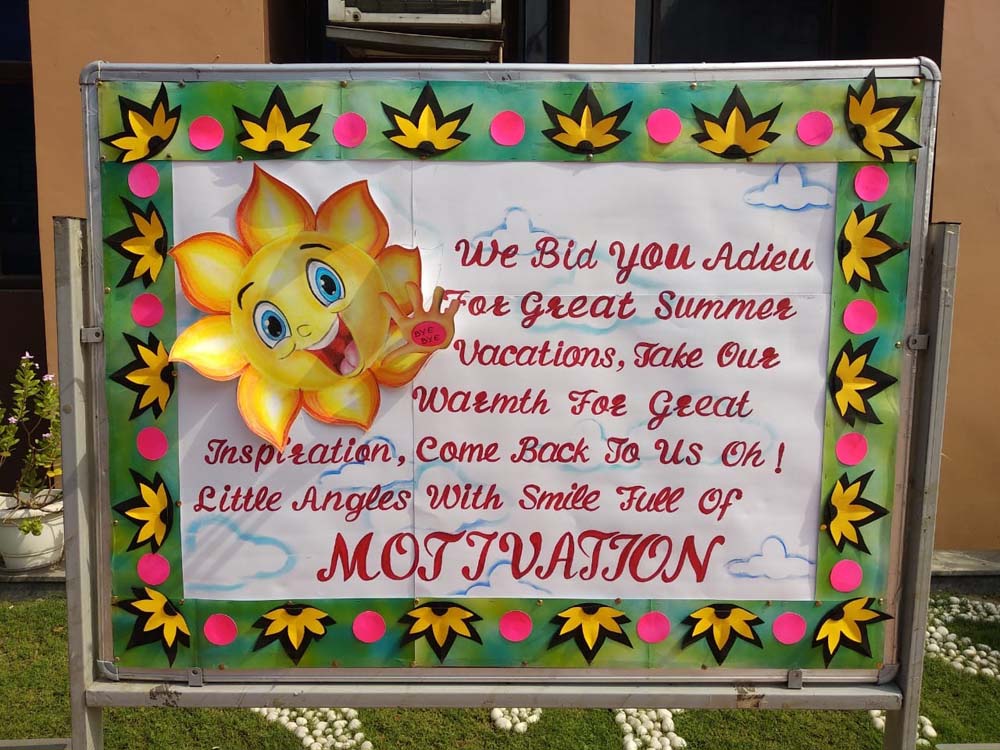 We Bid YOU Adieu
BYE
BYE
For Great Summer
Vacations, Take Our
Warmth For Great
Inspiration, Come Back To Us Oh!
Little Angles With Smile Full Of
MOTIVATION